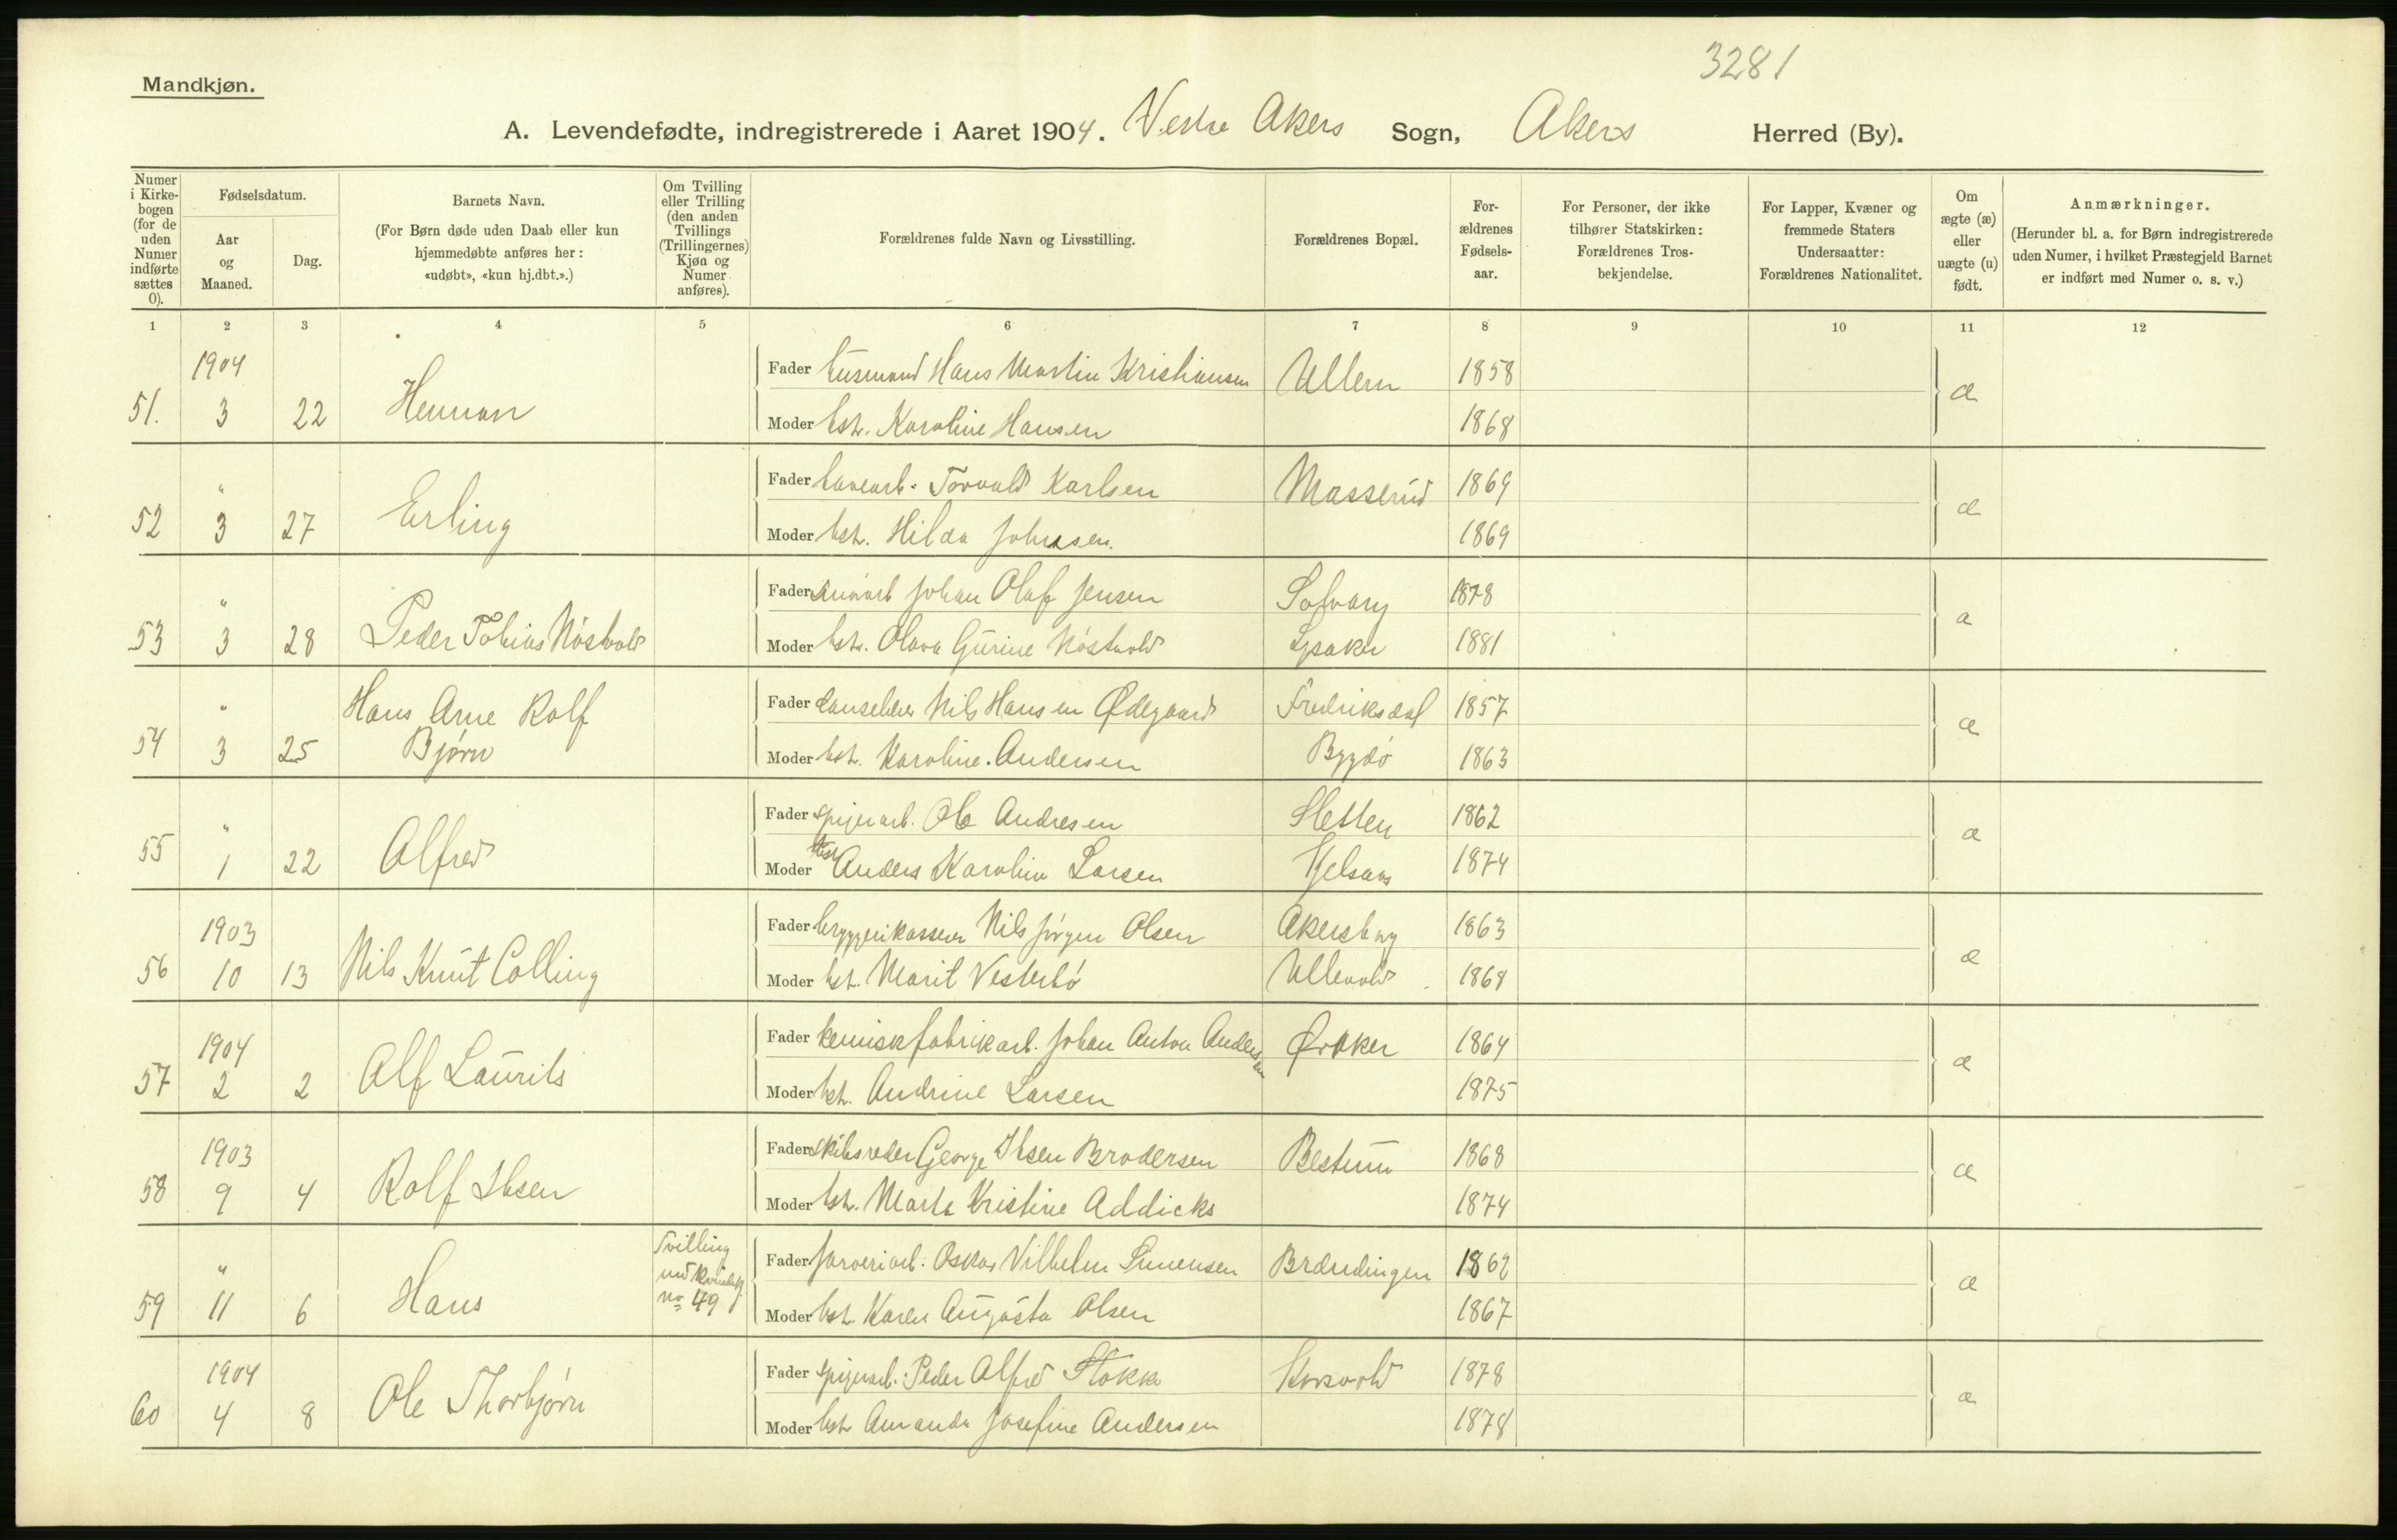 3281
Mandkjøn.
A. Levendefødte, indregistrerede i Aaret 1904. Vestre Akers Sogn, Akers Herred (By).
Numer i Kirkebogen (for de uden Numer indførte sættes 0).
Fødselsdatum.
Aar og Maaned.
Dag.
Barnets Navn.
(For Børn døde uden Daab eller kun hjemmedøbte anføres her: «udøbt», «kun hj.dbt.».)
Om Tvilling eller Trilling (den anden Tvillings (Trillingernes) Kjøn og Numer anføres).
Forældrenes fulde Navn og Livsstilling.
Forældrenes Bopæl.
Forældrenes Fødselsaar.
For Personer, der ikke tilhører Statskirken: Forældrenes Trosbekjendelse.
For Lapper, Kvæner og fremmede Staters Undersaatter: Forældrenes Nationalitet.
Om ægte (æ) eller uægte (u) født.
Anmærkninger.
(Herunder bl. a. for Børn indregistrerede uden Numer, i hvilket Præstegjeld Barnet er indført med Numer o. s. v.)
1 2 3 4 5 6 7 8 9 10 11 12
1904
51. 3 22 Herman
Fader husmand Hans Martin Kristiansen Ullern 1858 æ
Moder hst. Karoline Hansen 1868
52 " 3 27 Erling
Fader havearb. Torvald Karlsen Masserud 1869 æ
Moder hst. Hilda Johnsen 1869
53 " 3 28 Peder Tobias Nöstvold
Fader Johan Olaf Jensen 1878 æ
Moder hst. Olava Gurine Nöstvold Lysaker 1881
54 " 3 25 Hans Arne Rolf Bjørn
Fader danselærer Nils Hansen Ødegaard Fredriksdal 1857 æ
Moder hst. Karoline Andersen Bygdö 1863
55 " 1 22 Alfred
Fader spigerarb. Ole Andresen Sletten 1862 æ
Moder hst. Anders Karoline Larsen Kjelsaas 1874
1903
56 10 13 Nils Knut Colling
Fader bryggerikasserer Nils Jörgen Olsen Akersborg 1863 æ
Moder hst. Marit Vesterbö Ullevold 1868
1904
57 2 2 Alf Laurits
Fader kemiskfabrikarb. Johan Anton Andersen Øraker 1864 æ
Moder hst. Andrine Larsen 1875
1903
58 9 4 Rolf Ibsen
Fader skibsreder George Ibsen Brodersen Bestum 1868 æ
Moder hst. Marta Kristine Addicks 1874
59 " 11 6 Hans
Tvilling
med kvindekj.
no 49
Fader farveriarb. Oskar Vilhelm Simensen Brændingen 1862 æ
Moder hst. Karen Augusta Olsen 1867
1904
60 4 8 Ole Thorbjörn
Fader spigerarb. Peder Alfred Stokke Korsvold 1878 æ
Moder hst. Amanda Josefine Andersen 1878